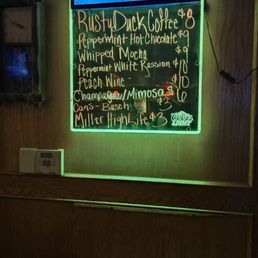 Rusty Duck Coffee $8
Peppermint Hot Chocolate $9
Whipped Mocha $9
Peppermint White Russian $10
Peach Wine $10
Champagne/Mimosa $6
Cans - Busch $3
Miller High Life $3
LIGHT